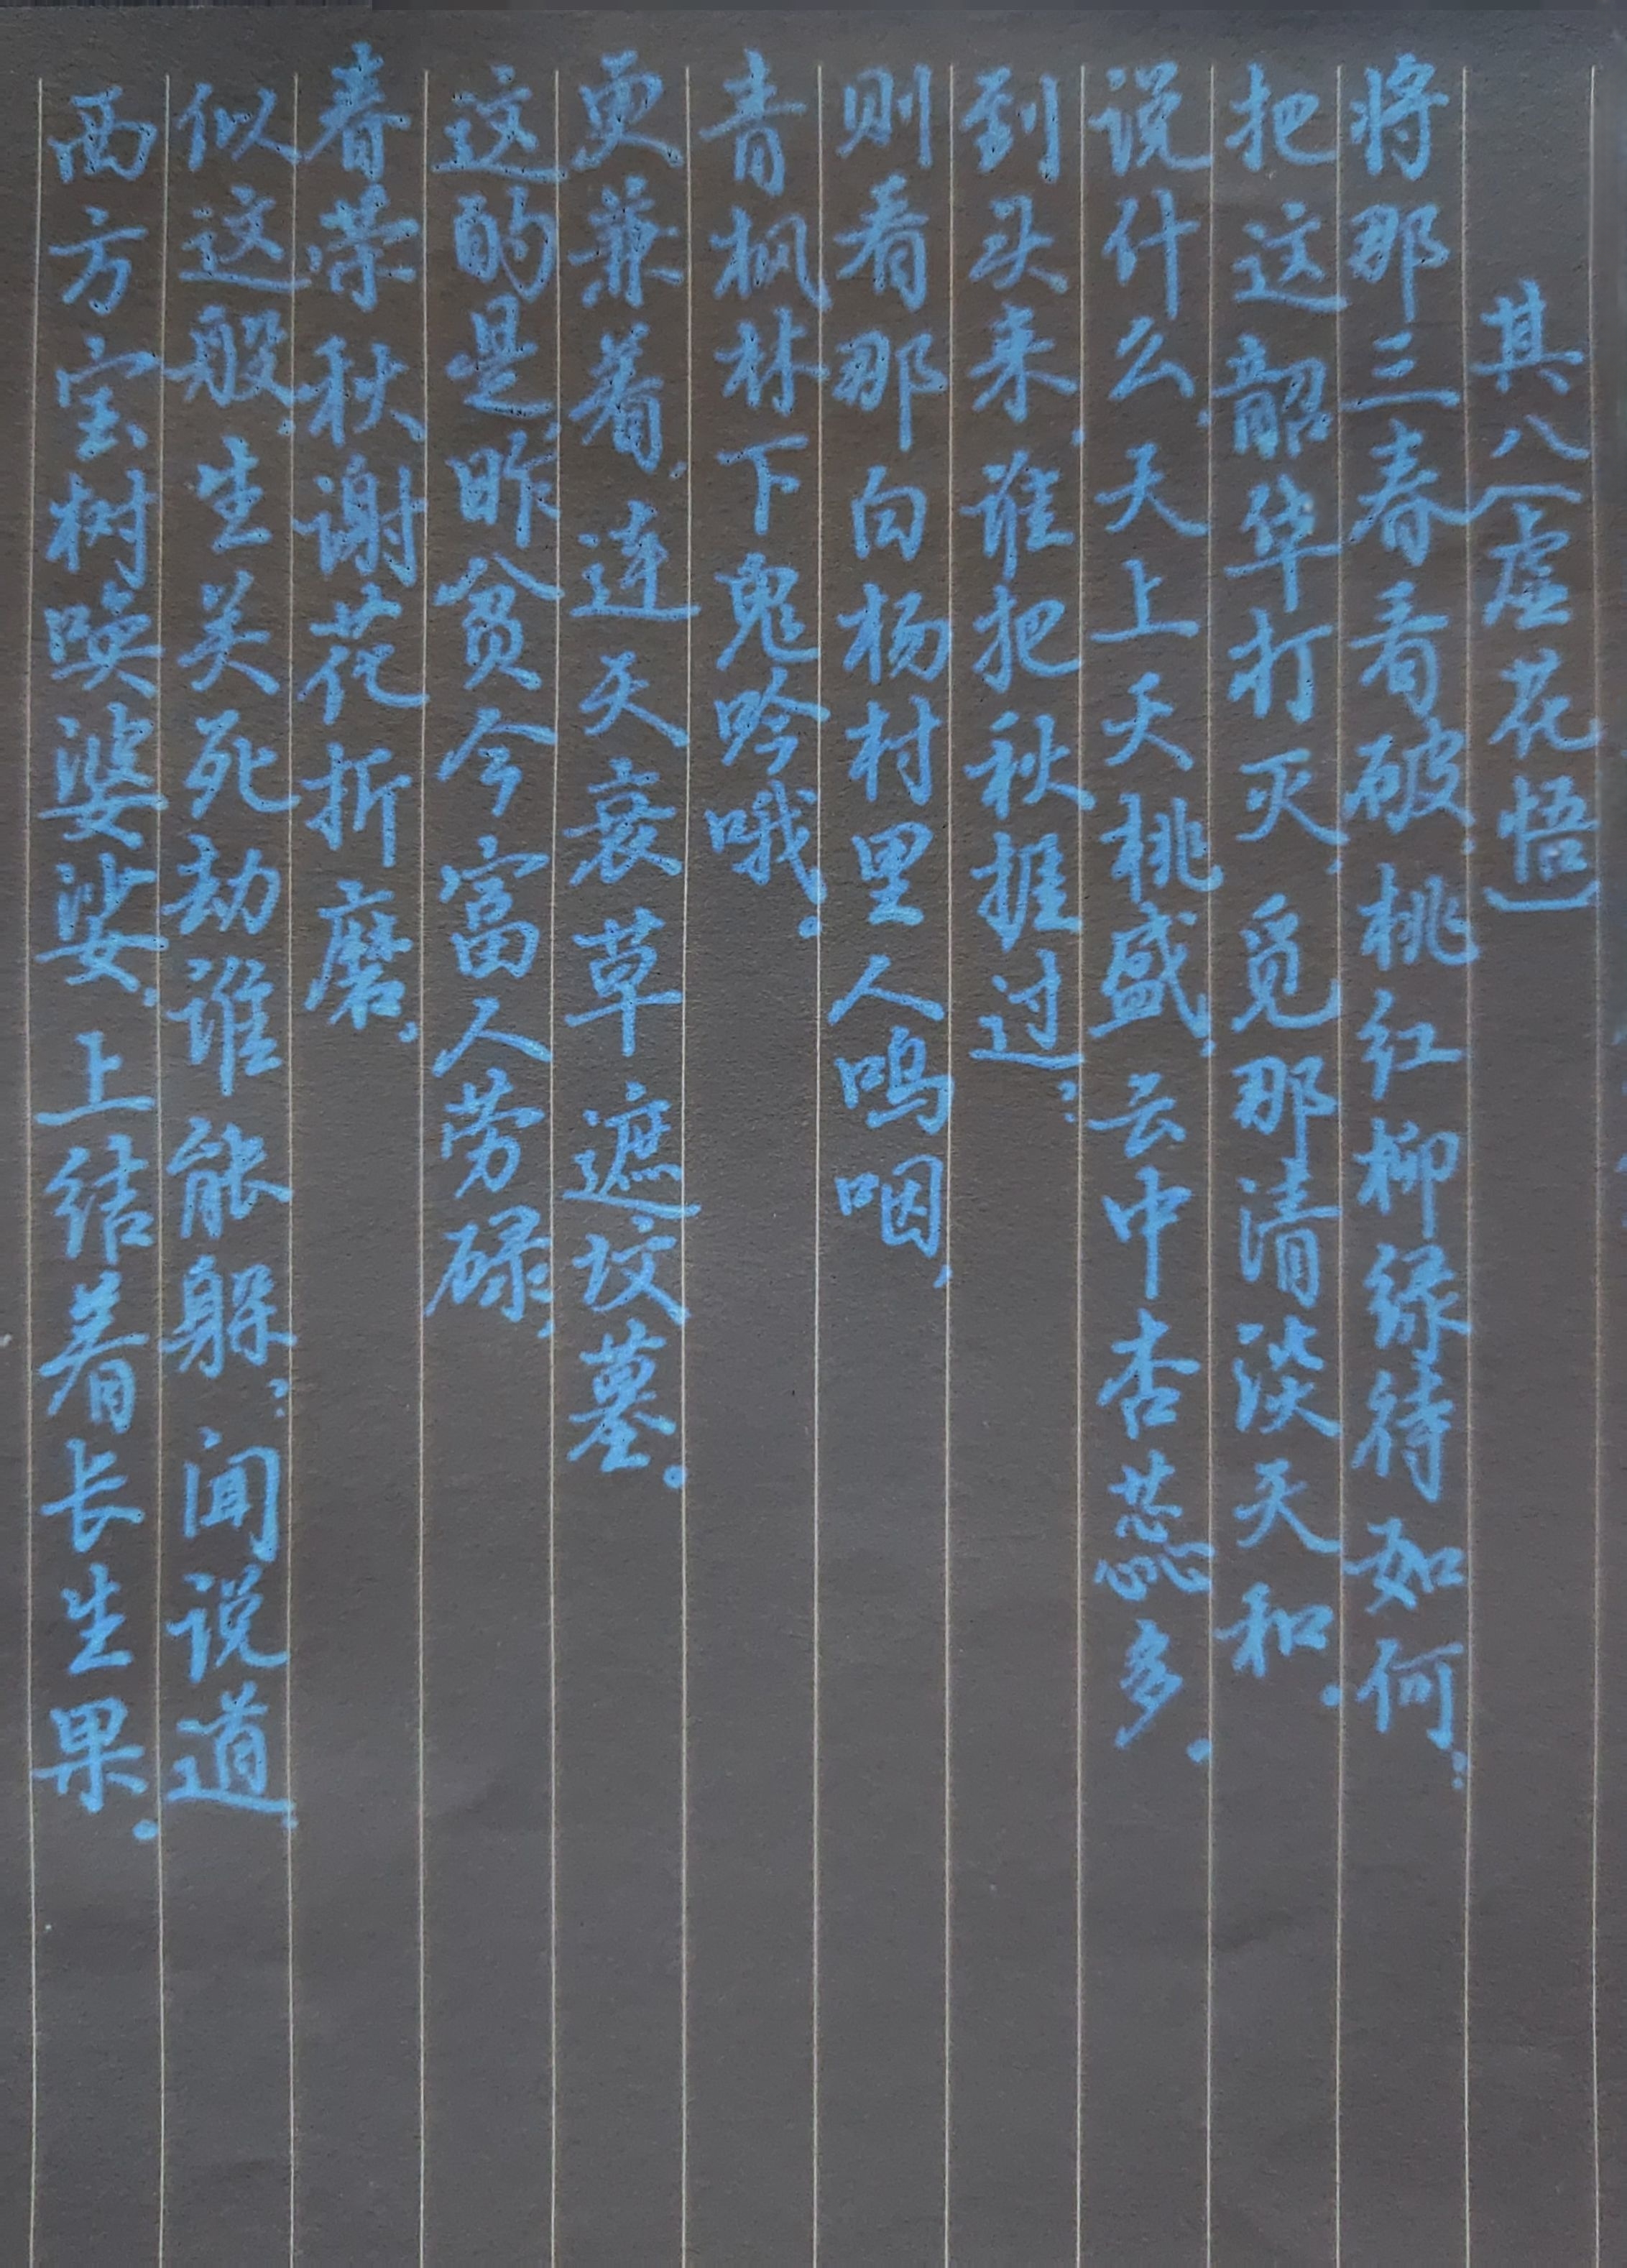 其八（虚花悟）
将那三春看破，桃红柳绿待如何；
把这韶华打灭，觅那清淡天和。
说什么，天上夭桃盛，云中杏蕊多。
到头来，谁把秋捱过；
则看那白杨村里人呜咽，
青枫林下鬼吟哦。
更兼着，连天衰草遮坟墓。
这的是，昨贫今富人劳碌，
春荣秋谢花折磨。
似这般，生关死劫谁能躲；闻说道，
西方宝树唤婆娑，上结着长生果。